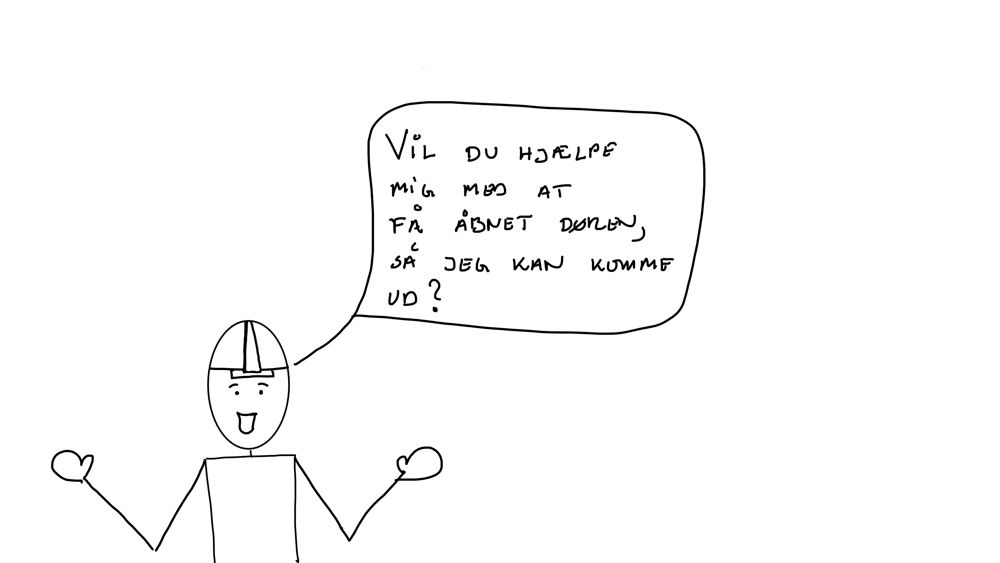 VIL DU HJÆLPE
MIG MED AT
FÅ ÅBNET DØREN,
SÅ JEG KAN KOMME
UD?